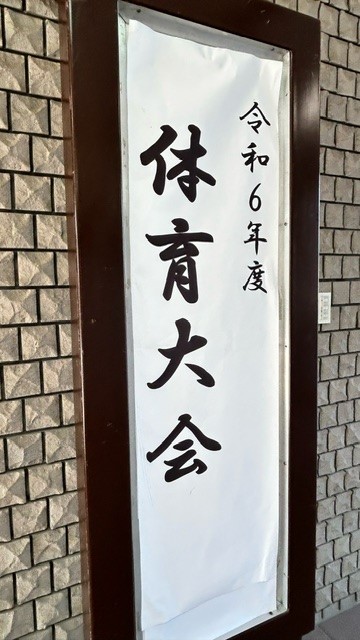 令和6年度
体育大会